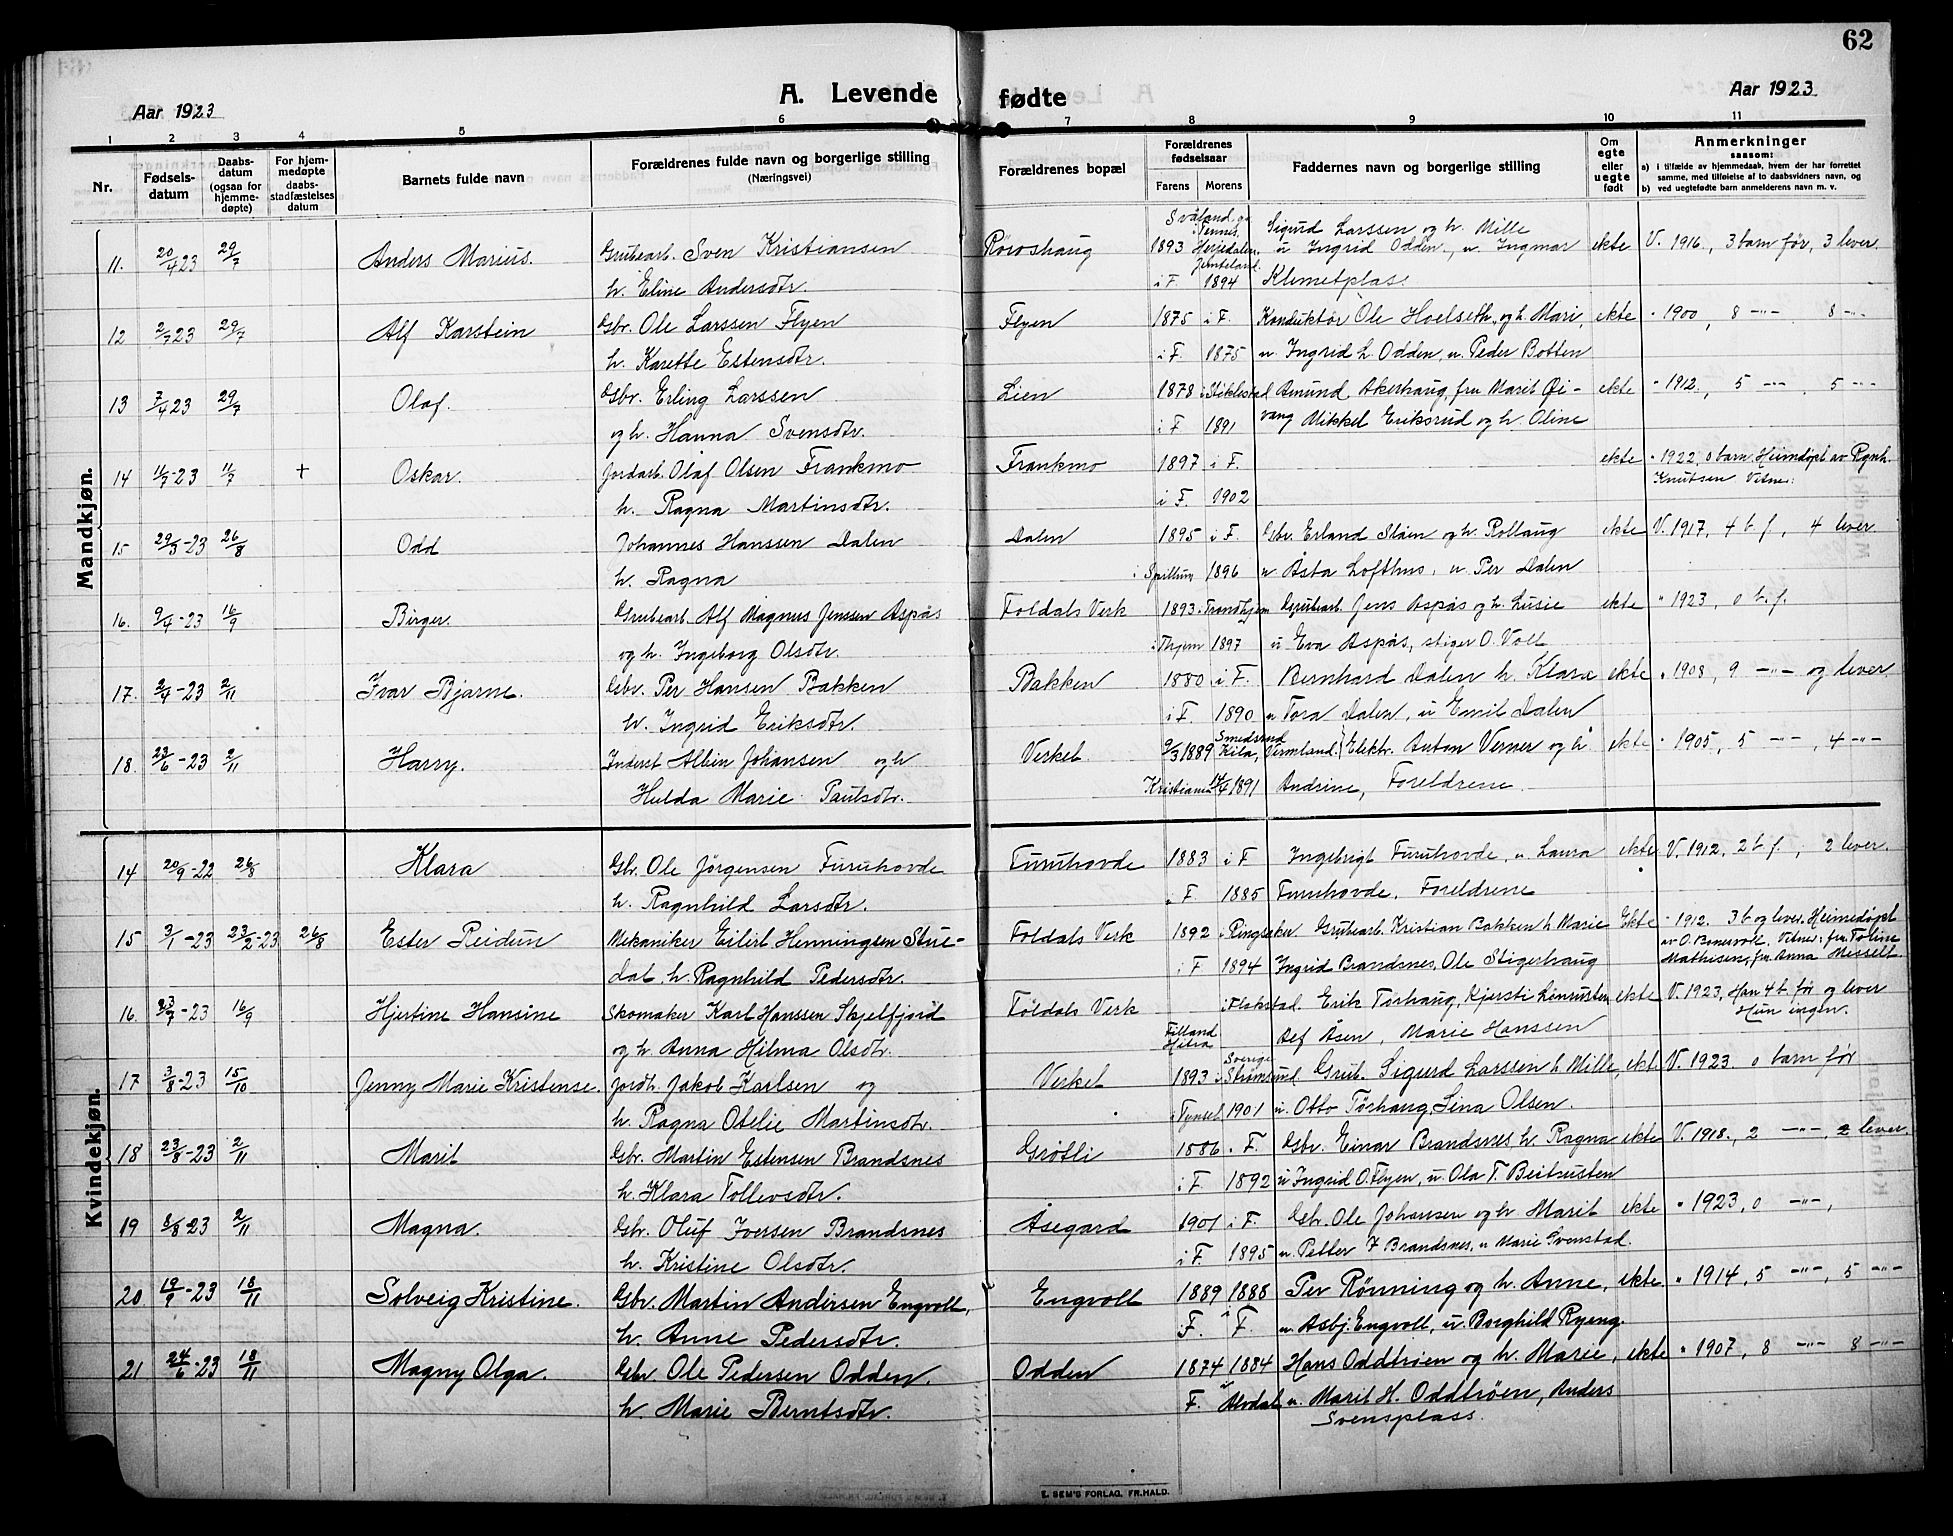 62
Aar 1923
A. Levende fødte
Aar 1923
1 2 3 4 5 6 7 8 9 10 11
Nr.
Fødsels-
datum
Daabs-
datum
(ogsaa for
hjemme-
døpte)
For hjem-
medøpte
daabs-
stadfæstelses
datum
Barnets fulde navn
Forældrenes fulde navn og borgerlige stilling
(Næringsvei)
Forældrenes bopæl
Forældrenes
fødselsaar
Farens Morens
Faddernes navn og borgerlige stilling
Om
egte
eller
uegte
født
Anmerkninger
saasom:
a) i tilfælde av hjemmedaab, hvem der har forrettet
samme, med tilføielse af to daabsvidners navn, og
b) ved uegtefødte barn anmelderens navn m. v.
Mandkjøn.
11. 20/4 23 29/7 Anders Marius. Grubearb. Sven Kristiansen Röroshaug 1893 Herjedalen Sigurd Larssen og h. Mille ekte V. 1916, 3 barn før, 3 lever
u Ingrid Odden, u. Ingmar
h. Eline Andersdtr. i F. 1894 Klemetplas.
12 2/7 23 29/7 Alf Karstein Gbr. Ole Larssen Flyen Flyen 1875 i F. Konduktör Ole Hoelseth, og h. Mari, ekte " 1900, 8 -"- 8 -"-
h. Karette Estensdtr. i F. 1875 u. Ingrid L. Odden, u. Peder Botten
13 7/4 23 29/7 Olaf. Gbr. Erling Larssen Lien 1878 i Stiklestad Amund Akerhaug, fru Marit Øi- ekte " 1912, 5 -"- 5 -"-
og h. Hanna Svensdtr. i F. 1891 vang Mikkel Eriksrud og h. Oline
14 11/7-23 11/7 + Oskar. Jordarb. Olaf Olsen Frankmo Frankmo 1897 i F. ekte " 1922, 0 barn. Heimdøpt av Rgnh.
Knutsen Vitne:
h. Ragna Martinsdtr. i F. 1902
15 29/3-23 26/8 Odd Johannes Hanssen Dalen Dalen 1895 i F. Gbr. Erland Stöen og h. Rollaug ekte V. 1917, 4 b. f, 4 lever
h. Ragna i Spillum 1896 u Åsta Lofthus, u. Per Dalen
16. 9/4-23 16/9 Birger. Grubearb. Alf Magnus Jenssen Aspås Foldals Verk 1893 Trondhjem Grubearb. Jens Aspås og h. Lusie ekte " 1923, 0 b. f.
og h. Ingeborg Olsdtr. i Thjem 1897 u Eva Aspås, stiger O. Voll
17. 2/9-23 2/11 Ivar Bjarne. Gbr. Per Hansen Bakken Bakken 1880 i F. Bernhard Dalen h. Klara ekte " 1908, 9 -"- og lever
h. Ingrid Eriksdtr. i F. 1890 u Tora Dalen, u Emil Dalen
18. 23/6-23 2/11 Harry. Albin Johansen og h Verket 9/3 1889 Smedsrud Kila, Vermland. Elektr. Anton Verner og h ekte " 1905, 5 -"-, 4 -"-
Hulda Marie Paulsdtr. Kristiania 14/4 1891 Andrine, Foreldrene.
Kvindekjøn.
14 20/9-22 26/8 Klara Gbr. Ole Jörgensen Furuhovde Furuhovde 1883 i F Ingebrigt Furuhovde, u Laura ekte V. 1912, 2 b f., 2 lever.
h. Ragnhild Larsdtr. i F. 1885 Furuhovde. Foreldrene
15 3/1-23 23/2-23 26/8 Ester Reidun Mekaniker Eilert Henningsen Stue- Foldals Verk 1892 i Ringsaker Grubearb. Kristian Bakken h Marie Ekte " 1912. 3 b og lever. Heimedøpt
dal h. Ragnhild Pedersdtr. i F 1894 Ingrid Brandsnes, Ole Stigerhaug
Vitner: fru Toline
Mathisen, fr. Anna Misselt.
16. 23/7-23 16/9 Hjertine Hansine Skomaker Karl Hanssen Skjelfjord Foldals Verk i Flakstad. Erik Torhaug, Kjersti Lenrusten ekte V. 1923, Han 4 b. før og lever
Hun ingen.
og h Anna Hilma Olsdtr. Filland Hitra Alf Åsen, Marie Hanssen
17 3/8-23 15/10 Jenny Marie Kristense. Jordh. Jakob Karlsen og Verket 1893 i Sverige Strömsund Grub. Sigurd Larssen h Mille, ekt. V. 1923. 0 barn før
h. Ragna Otelie Martinsdtr. i Tynset 1901 u. Otto Tørhaug, Lina Olsen.
18 23/8-23 2/11 Marit Gbr. Martin Estensen Brandsnes Grötli 1886 i F. Gbr. Einar Brandsnes h. Ragna ekte V. 1918, 2 -"-, 2 lever.
h. Klara Tollevsdtr. i F. 1892 u Ingrid O. Flyen, u. Ola T. Beitrusten
19 8/8-23 2/11 Magna. Gbr. Oluf Iversen Brandsnes Åsegard 1901 i F. Gbr. Ole Johansen og h Marit ekte " 1923, 0 -"-,
h. Kristine Olsdtr. i F. 1895 u. Petter I Brandsnes, u Marie Svenstad.
20 19/9-23 18/11 Solveig Kristine. Gbr. Martin Andersen Engvoll, Engvoll 1889 1888 Per Rönning og h. Anne, ekte " 1914, 5 -"-, 5 -"-
h. Anne Pedersdtr. F. F. u. Asbj. Engvoll, u. Borghild Ryeng.
21 24/6-23 18/11 Magny Olga. Gbr Ole Pedersen Odden. Odden 1874 1884 Hans Oddtröen og h. Marie, ekte " 1907, 8 -"- 8 -"-
h. Marie Berntsdtr. F. Alvdal u. Marit H. Oddtröen, Anders
Svensplass.
E. SEM'S FORLAG. FR.HALD.